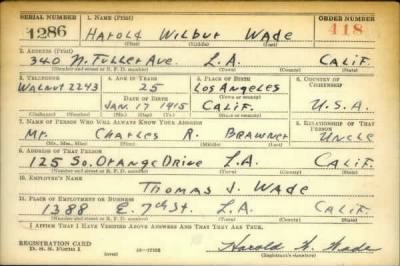 SERIAL NUMBER 1. NAME (Print) ORDER NUMBER
1286 Harold Wilbur Wade 418
(First) (Middle) (Last)
2. ADDRESS (Print)
340 N. Fuller Ave. L.A. Calif.
(Number and street or R. F. D. number) (Town) (County) (State)
3. TELEPHONE 4. AGE IN YEARS 5. PLACE OF BIRTH 6. COUNTRY OF CITIZENSHIP
Walnut 2243 25 Los Angeles
DATE OF BIRTH (Town or county)
Jan. 17 1915 Calif. U.S.A.
(Exchange) (Number) (Mo.) (Day) (Yr.) (State or country)
7. NAME OF PERSON WHO WILL ALWAYS KNOW YOUR ADDRESS 8. RELATIONSHIP OF THAT PERSON
Mr. Charles R. Brawner Uncle
(Mr., Mrs., Miss) (First) (Middle) (Last)
9. ADDRESS OF THAT PERSON
125 So. Orange Drive L.A. Calif.
(Number and street or R. F. D. number) (Town) (County) (State)
10. EMPLOYER'S NAME
Thomas J. Wade
11. PLACE OF EMPLOYMENT OR BUSINESS
1388 E. 7th St. L.A. Calif.
(Number and street or R. F. D. number) (Town) (County) (State)
I AFFIRM THAT I HAVE VERIFIED ABOVE ANSWERS AND THAT THEY ARE TRUE.
REGISTRATION CARD
D. S. S. Form 1 (over) Harold W. Wade
(Registrant's signature)